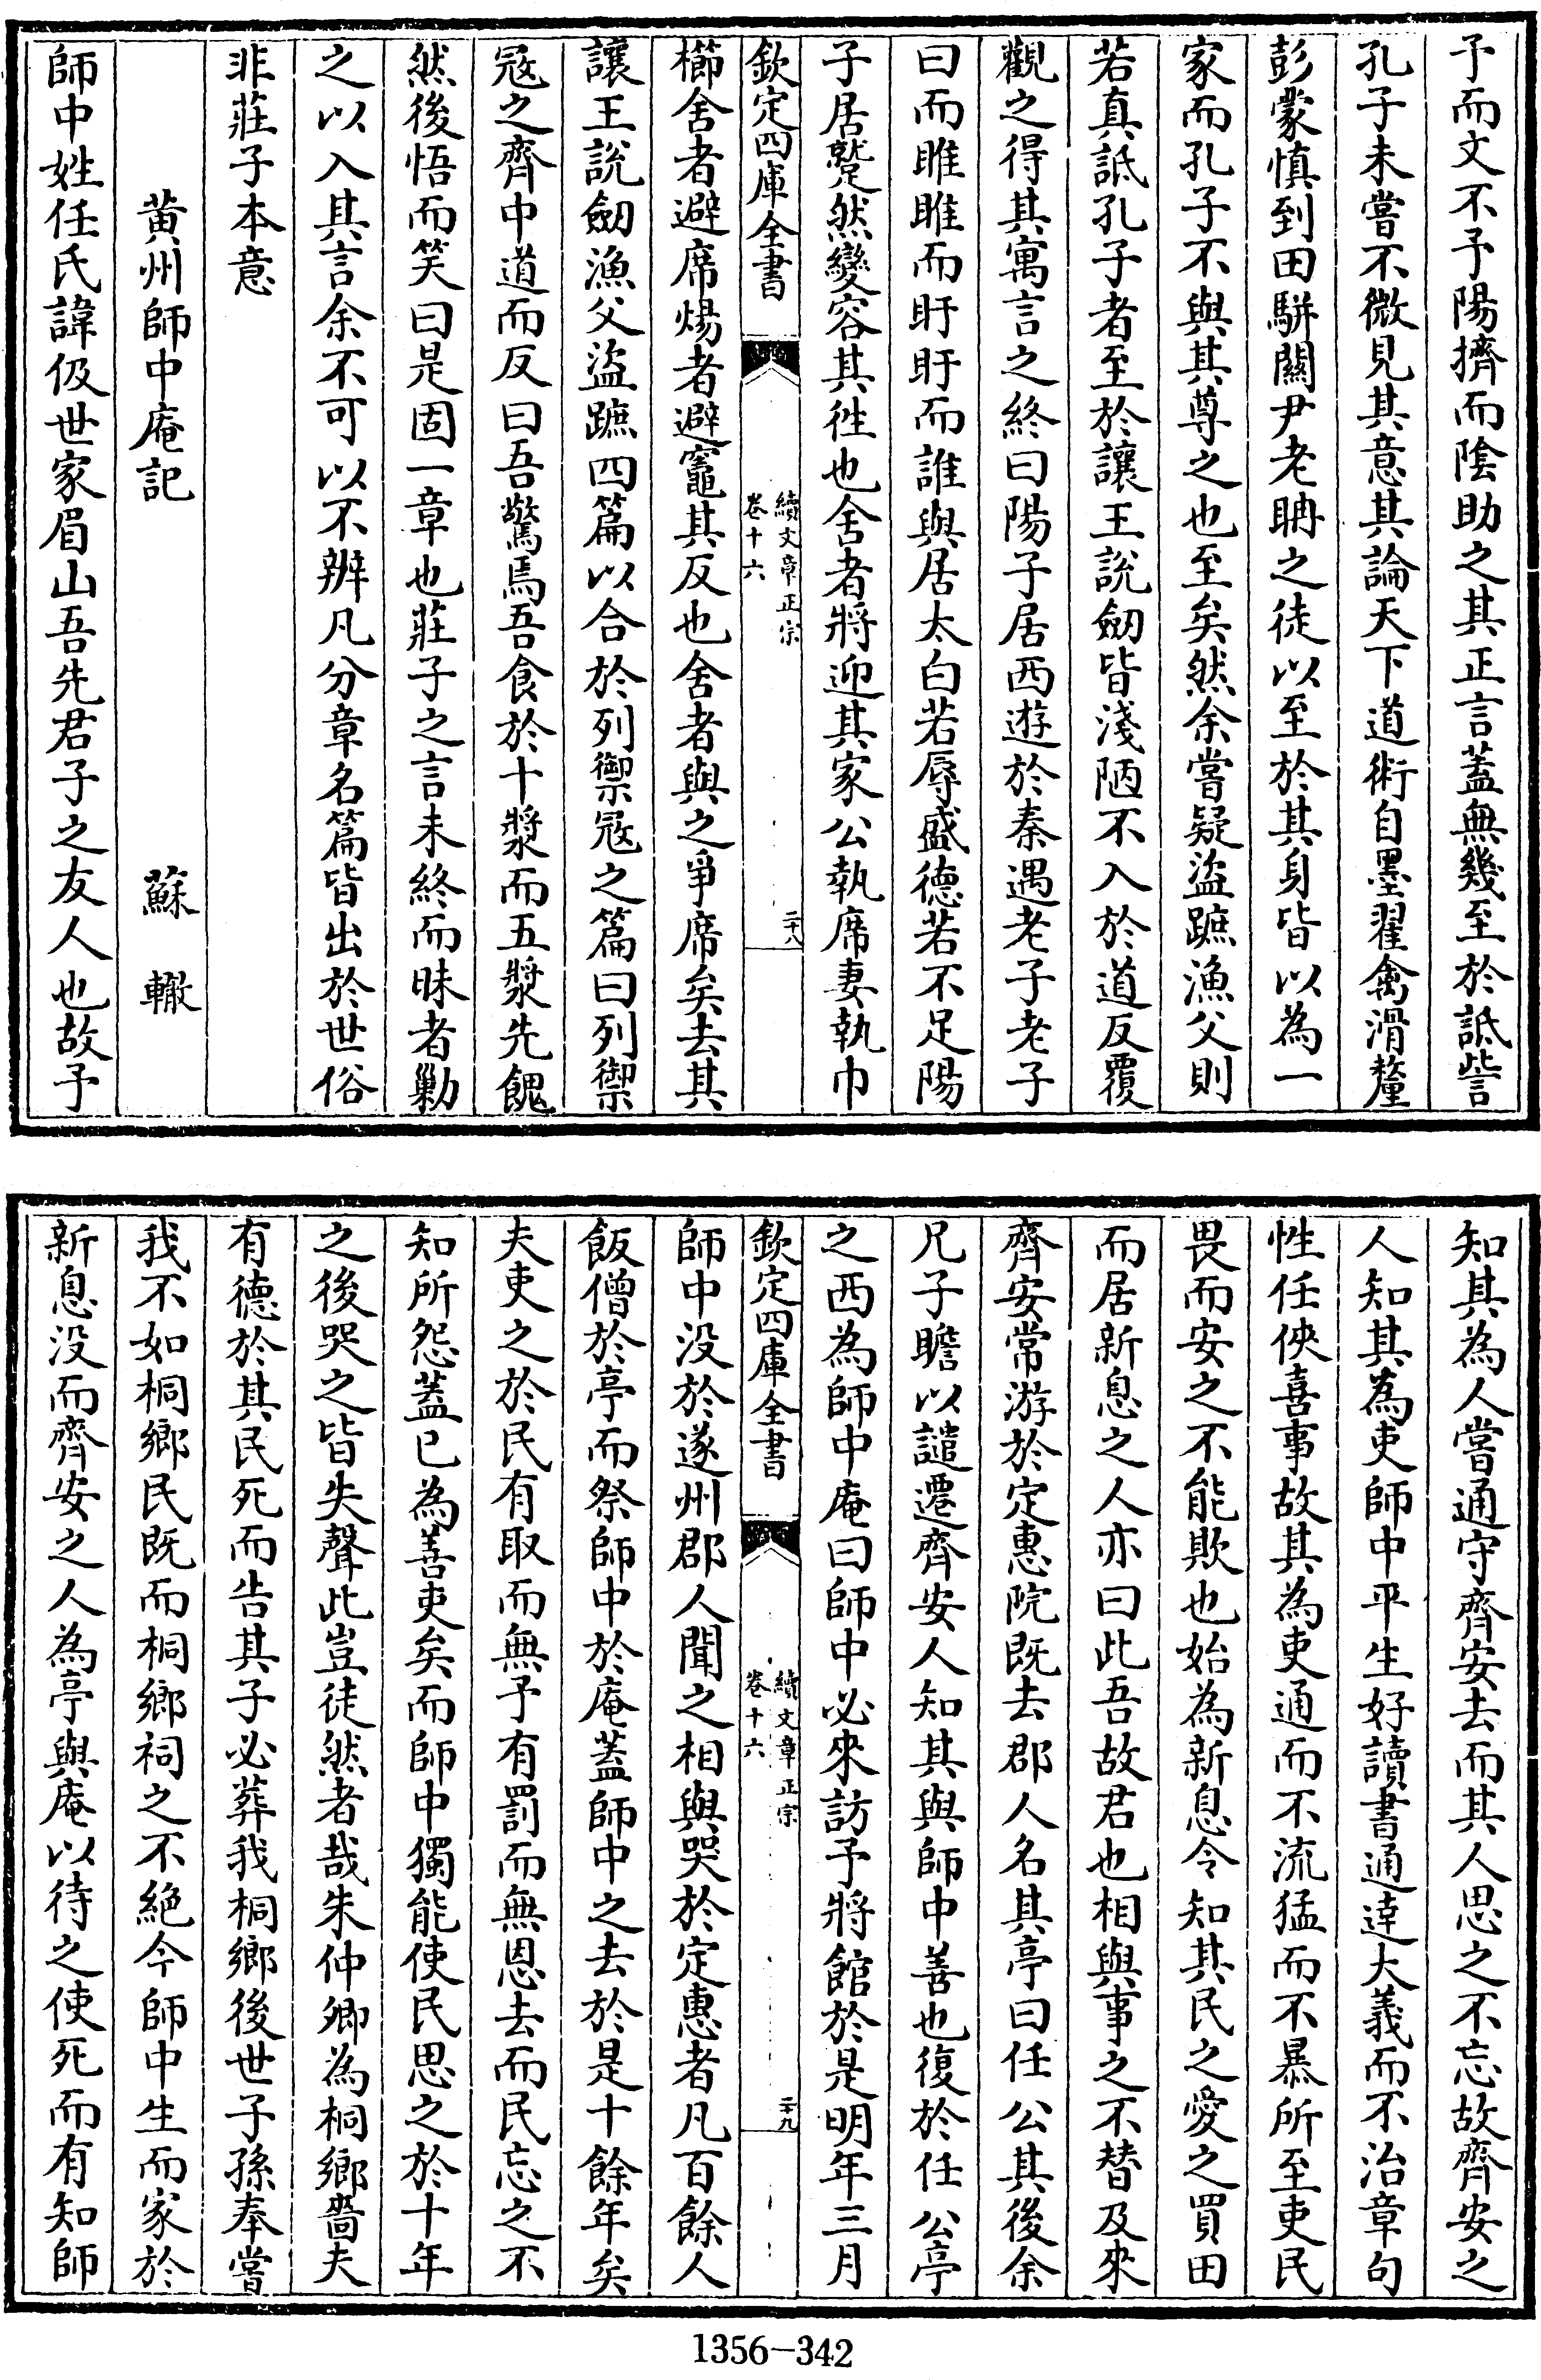 予而文不予陽擠而陰助之其正言蓋無幾至於詆訾
孔子未嘗不微見其意其論天下道術自墨翟禽滑釐
彭蒙慎到田駢關尹老聃之徒以至於其身皆以為一
家而孔子不與其尊之也至矣然余嘗疑盜蹠漁父則
若真詆孔子者至於讓王說劒皆淺陋不入於道反覆
觀之得其寓言之終曰陽子居西遊於秦遇老子老子
曰而睢睢而盱盱而誰與居太白若辱盛德若不足陽
子居蹵然變容其徃也舍者將迎其家公執席妻執巾
欽定四庫全書
續文章正宗
卷十六
二十八
櫛舍者避席煬者避竈其反也舍者與之爭席矣去其
讓王說劒漁父盜蹠四篇以合於列禦冦之篇曰列禦
冦之齊中道而反曰吾驚焉吾食於十漿而五漿先餽
然後悟而笑曰是固一章也莊子之言未終而昧者勦
之以入其言余不可以不辨凡分章名篇皆出於世俗
非莊子本意
黄州師中庵記
蘇轍
師中姓任氏諱伋世家眉山吾先君子之友人也故予
知其為人嘗通守齊安去而其人思之不忘故齊安之
人知其為吏師中平生好讀書通達大義而不治章句
性任俠喜事故其為吏通而不流猛而不暴所至吏民
畏而安之不能欺也始為新息令知其民之愛之買田
而居新息之人亦曰此吾故君也相與事之不替及來
齊安常游於定惠院既去郡人名其亭曰任公其後余
兄子瞻以譴遷齊安人知其與師中善也復於任公亭
之西為師中庵曰師中必來訪予將館於是明年三月
欽定四庫全書
續文章正宗
卷十六
二十九
師中没於遂州郡人聞之相與哭於定惠者凡百餘人
飯僧於亭而祭師中於庵蓋師中之去於是十餘年矣
夫吏之於民有取而無予有罰而無恩去而民忘之不
知所怨蓋已為善吏矣而師中獨能使民思之於十年
之後哭之皆失聲此豈徒然者哉朱仲卿為桐鄉嗇夫
有德於其民死而告其子必葬我桐鄉後世子孫奉嘗
我不如桐鄉民既而桐鄉祠之不絕今師中生而家於
新息没而齊安之人為亭與庵以待之使死而有知師
1356-342